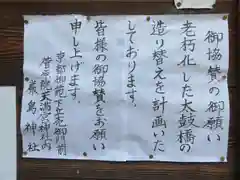 御協賛の御願い
老朽化した太鼓橋の
造り替えを計画いた
しております。
皆様の御協賛をお願い
申し上げます。
京都御苑下立売御門前
菅原院天満宮神社内
厳島神社